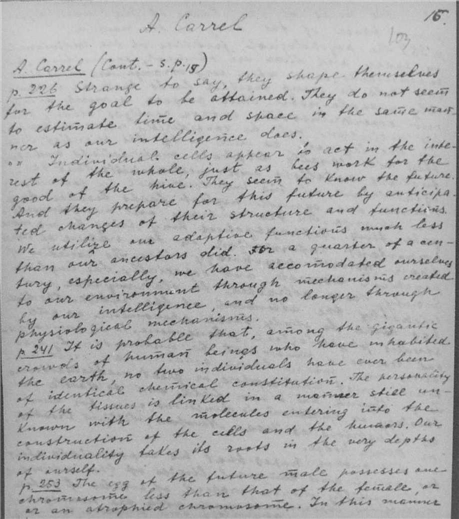 A. Carrel
15.
103
A. Carrel (Cont. - s. p. 18)
p. 226 Strange to say, they shape themselves
for the goal to be attained. They do not seem
to estimate time and space in the same man-
ner as our intelligence does.
" " Individual cells appear to act in the inte-
rest of the whole, just as bees work for the
good of the hive. They seem to know the future.
And they prepare for this future by anticipa-
ted changes of their structure and functions.
We utilize our adaptive functions much less
than our ancestors did. For a quarter of a cen-
tury, especially, we have accomodated ourselves
to our environment through mechanisms created
by our intelligence, and no longer through
physiological mechanisms.
p. 241 It is probable that, among the gigantic
crowds of human beings who have inhabited
the earth, no two individuals have ever been
of identical chemical constitution. The personality
of the tissues is linked in a manner still un-
known with the molecules entering into the
construction of the cells and the humors. Our
individuality takes its roots in the very depths
of ourself.
p. 253 The egg of the future male possesses one
chromosome less than that of the female, or
or an atrophied chromosome. In this manner